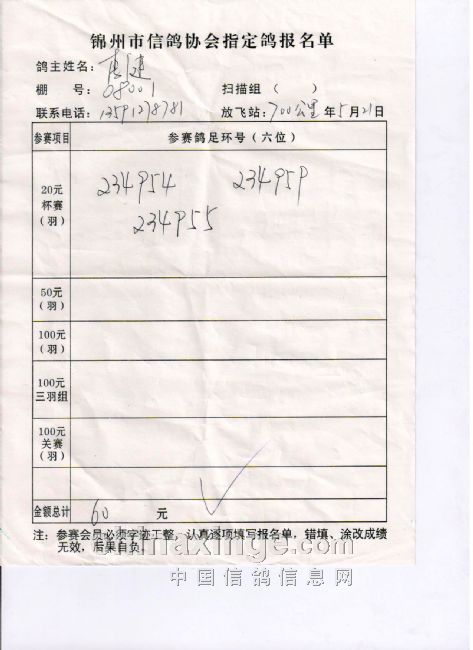 锦州市信鸽协会指定鸽报名单
鸽主姓名：
棚 号：08001 扫描组（ ）
联系电话：13591278781 放飞站：700公里 年5月21日
参赛项目 参赛鸽足环号（六位）
20元
杯赛
（羽）
234954 234959
234955
50元
（羽）
100元
（羽）
100元
三羽组
100元
关赛
（羽）
金额总计 60 元
注：参赛会员必须字迹工整，认真逐项填写报名单，错填、涂改成绩
无效，后果自负。
chinaxinge.com
中国信鸽信息网